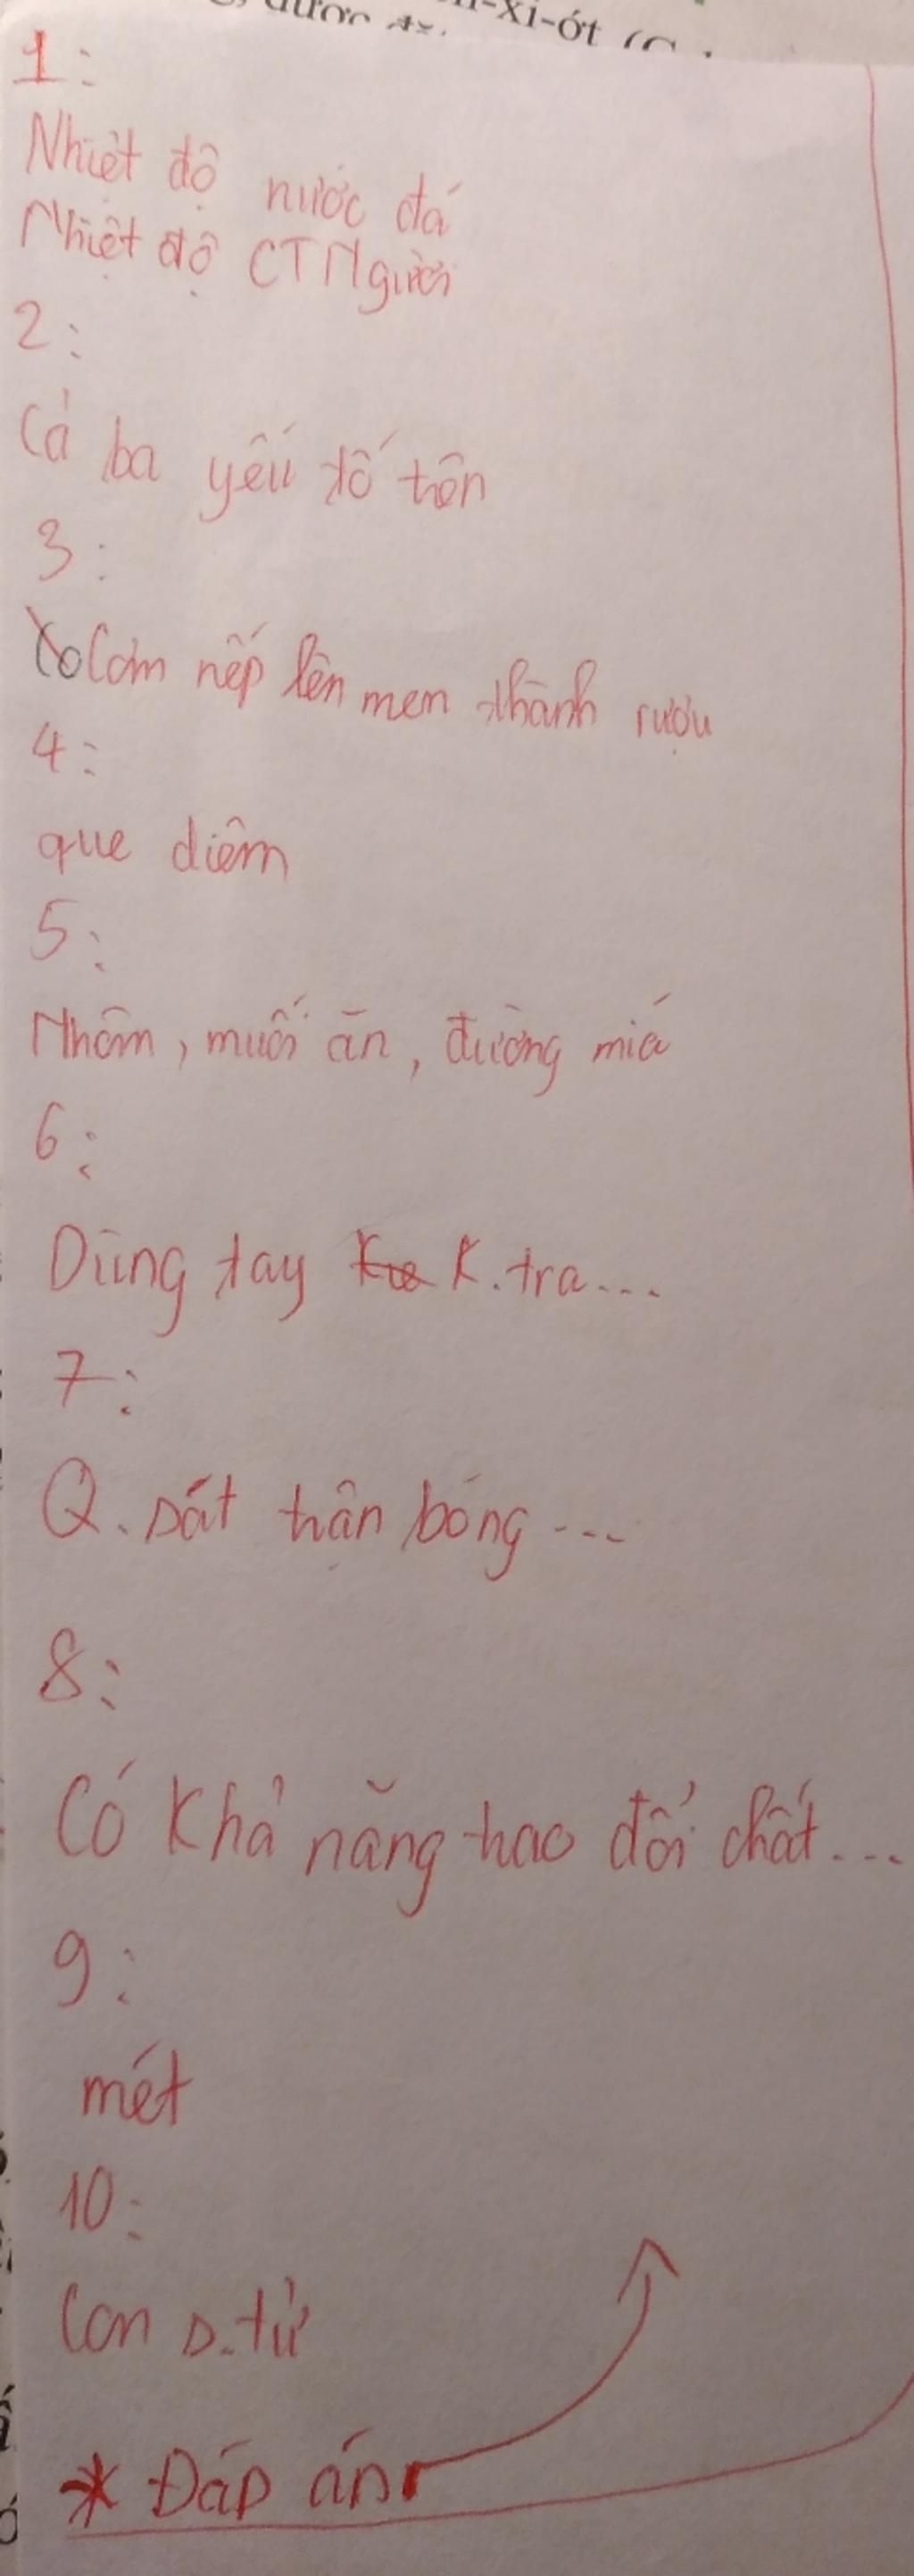 -xi-ớt
1:
Nhiệt độ nước đá
Nhiệt độ CT Người
2:
Cả ba yếu tố trên
3:
Cơm nếp lên men thành rượu
4:
que diêm
5:
Nhôm, muối ăn, đường mía
6:
Dùng tay K. tra...
7:
Q. sát trận bóng...
8:
Có khả năng trao đổi chất...
9:
mét
10:
Con s. tử
* Đáp án